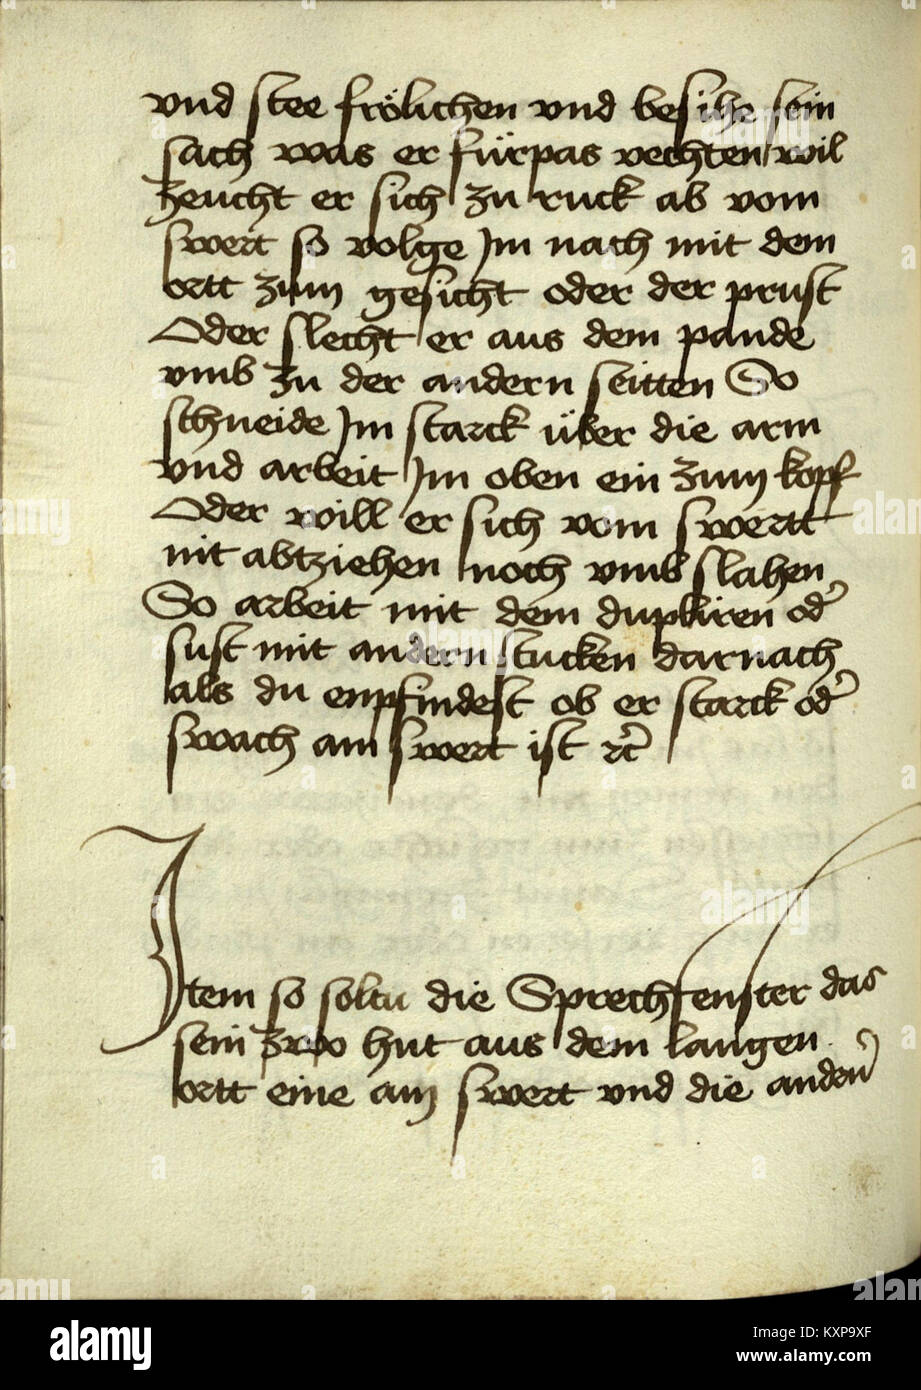 vnd stee frölichen vnd besihe sein
sach was er fürpas vechten wil
zeucht er sich zu ruck ab vom
swert so volge Jm nach mit dem
ortt zum gesicht oder der prust
Oder slecht er aus dem pande
vmb zu der andern seitten So
schneide Jm starck über die arm
vnd arbeit Jm oben ein zum kopf
Oder will er sich vom swertt
nit abtziehen noch vmb slahen
So arbeit mit dem dupliren od̉
sust mit andern stucken darnach
als du enpfindest ob er starck od̉
swach am swert ist ꝛc̉
Jtem so soltu die Sprechfenster das
sein zwo hut aus dem langen
ortt eine am swert vnd die andrn̄
alamy
Image ID: KXP9XF
www.alamy.com